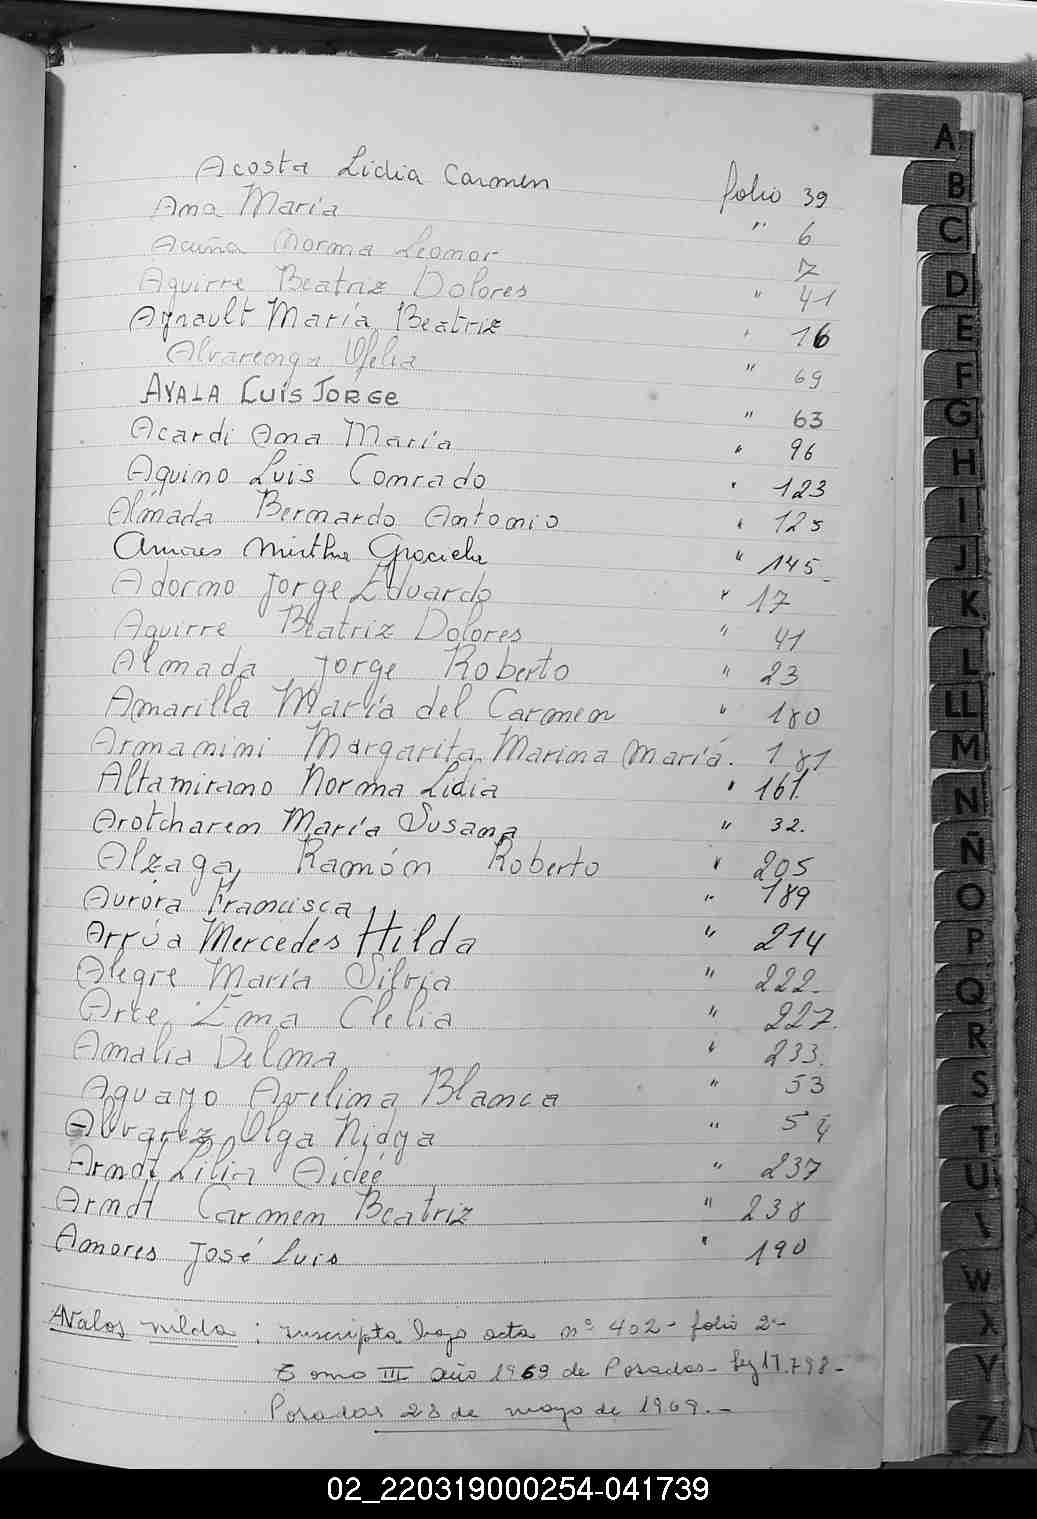 Acosta Lidia Carmen folio 39
Ana María " 6
Acuña Norma Leonor 7
Aguirre Beatriz Dolores " 41
Aynault María Beatriz " 16
Alvarenga Ofelia " 69
AYALA LUIS JORGE " 63
Acardi Ana María " 96
Aquino Luis Conrado " 123
Almada Bernardo Antonio " 125
Amores Mirtha Graciela " 145
Adorno Jorge Eduardo " 17
Aguirre Beatriz Dolores " 41
Almada Jorge Roberto " 23
Amarilla María del Carmen " 180
Armanini Margarita Marina María. 181
Altamirano Norma Lidia " 161.
Arotcharen María Susana " 32.
Alzaga Ramón Roberto " 205
Aurora Francisca " 189
Arrúa Mercedes Hilda " 214
Alegre María Silvia " 222.
Arce, Ema Clelia " 227.
Amalia Delma " 233.
Aguayo Avelina Blanca " 53
Alvarez Olga Nidya " 54
Arndt Lilia Aideé " 237
Arndt Carmen Beatriz " 238
Amores José Luis " 190
Avalos nilda : inscripta bajo acta nº 402 - folio 2 -
Tomo III año 1969 de Posadas - ley 17.798 -
Posadas 28 de mayo de 1969. -
A
B
C
D
E
F
G
H
I
J
K
L
LL
M
N
Ñ
O
P
Q
R
S
T
U
W
X
Y
Z
02_220319000254-041739